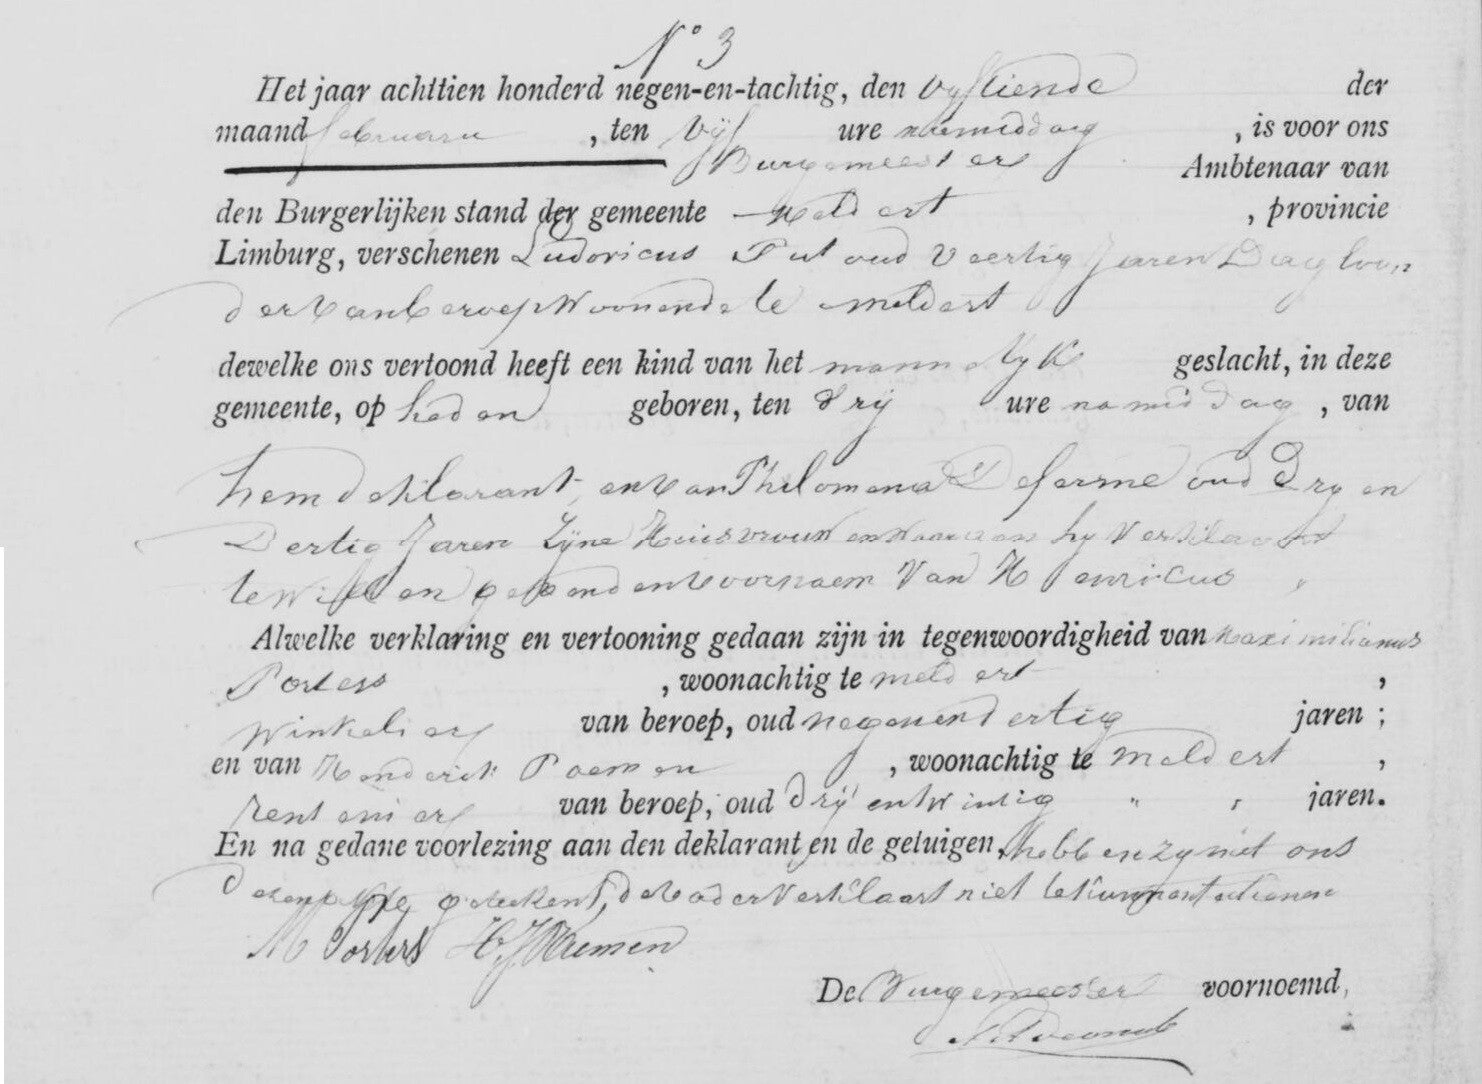 N° 3
Het jaar achttien honderd negen-en-tachtig, den vyftiende der
maand februaru , ten vyf ure namiddag , is voor ons
Burgemeester Ambtenaar van
den Burgerlijken stand der gemeente meldert , provincie
Limburg, verschenen Ludovicus Put oud veertig Jaren Dagloon
der van beroep Woonende te meldert
dewelke ons vertoond heeft een kind van het mannelyk geslacht, in deze
gemeente, op heden geboren, ten dry ure namiddag , van
hem deklarant, en van Philomena Deferme oud Dry en
Dertig Jaren Zyne Huisvrouw en Waar aan hy Verklaart
te Willen geven den Voornaem Van Henricus
Alwelke verklaring en vertooning gedaan zijn in tegenwoordigheid van Maximilianus
Porters , woonachtig te meldert ,
Winkelier van beroep, oud negenendertig jaren ;
en van Henderik Paemen , woonachtig te meldert ,
rentenier van beroep, oud dryentwintig jaren.
En na gedane voorlezing aan den deklarant en de getuigen, hebben zy met ons
deze akte geteekent, de Vader Verklaart niet te kunnen
M Porters H J Paemen
De Burgemeester voornoemd,